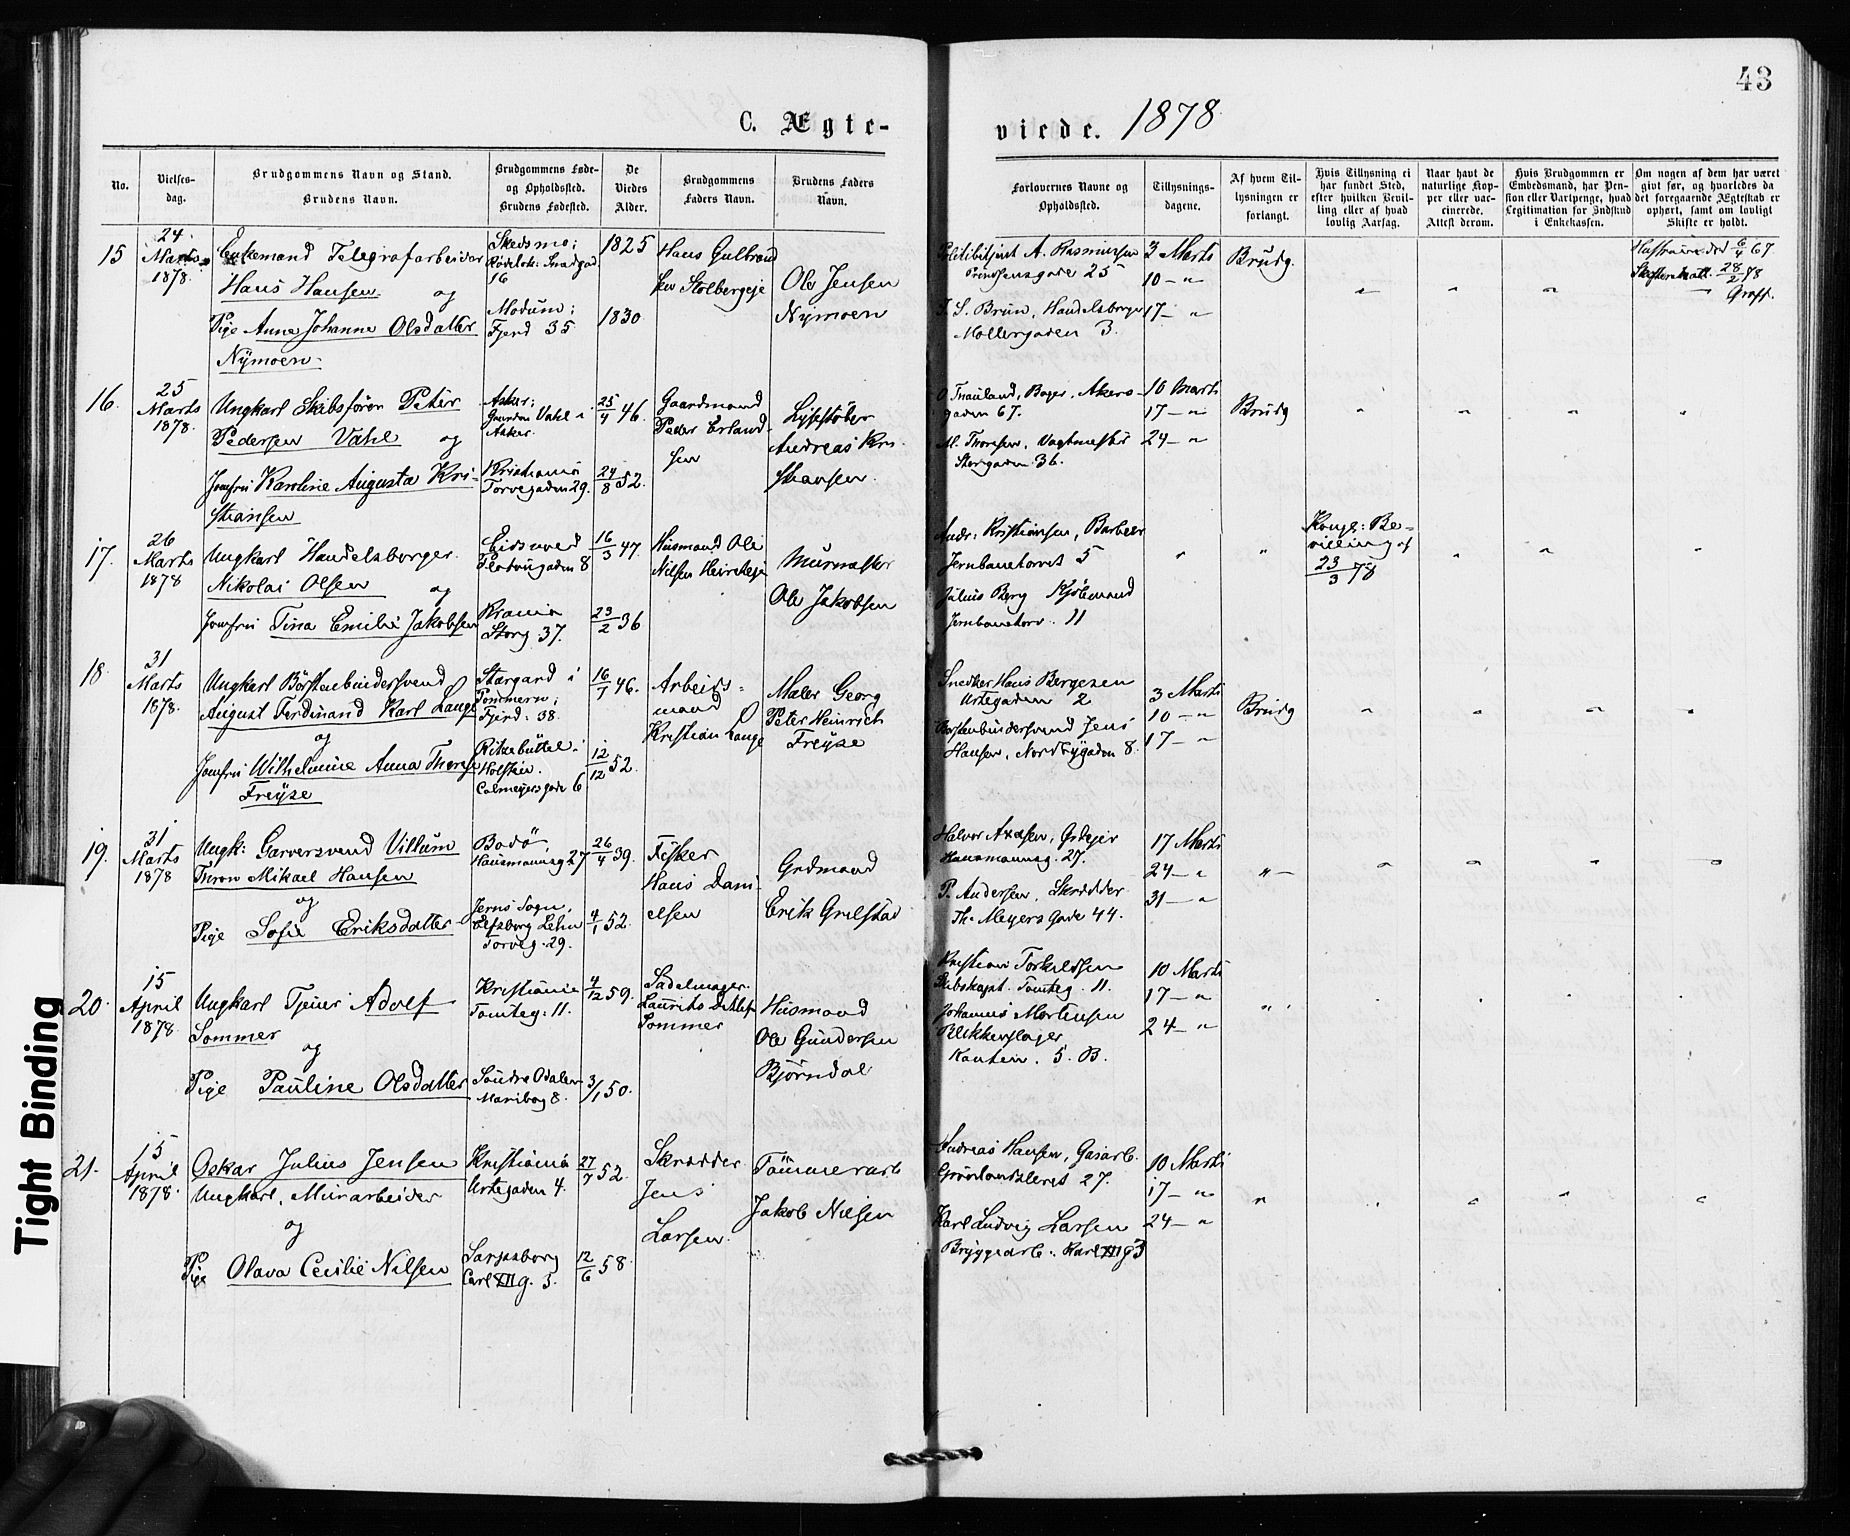 43
C. Ægte-
viede. 1878
No.
Vielses-
dag.
Brudgommens Navn og Stand.
Brudens Navn.
Brudgommens Føde-
og Opholdssted.
Brudens Fødested.
De
Viedes
Alder.
Brudgommens
Faders Navn.
Brudens Faders
Navn.
Forlovernes Navne og
Opholdssted.
Tillysnings-
dagene.
Af hvem Til-
lysningen er
forlangt.
Hvis Tillysning ei
har fundet Sted,
efter hvilken Bevil-
ling eller af hvad
lovlig Aarsag.
Naar havt de
naturlige Kop-
per eller vac-
cinerede.
Attest derom.
Hvis Brudgommen er
Embedsmand, har Pen-
sion eller Vartpenge, hvad
Legitimation for Indskud
i Enkekassen.
Om nogen af dem har været
givt før, og hvorledes da
det foregaaende Ægteskab er
ophørt, samt om lovligt
Skifte er holdt.
15
24
Marts
1878.
Enkemand Telegrafarbeider
Hans Hansen og
Pige Anne Johanne Olsdatter
Nymoen
Skedsmo;
16
Modum;
Fjerd 35
1825
1830
Hans Gulbrand
sen Stolbergeje
Ole Jensen
Nymoen
Politibetjent A. Rasmussen
Prindsensgade 25
J. S. Brun, Handelsborger
Møllergaden 3.
3 Marts
10 — "
17 — "
Brudg.
" " "
Hustruen død 6/4 67
Skifteratt. 28/2 78
Graff.
16.
25
Marts
1878.
Ungkarl Skibsfører Peter
Pedersen Vahl og
Jomfru Karoline Augusta Kri-
stiansen
Asker;
Gaarden Vahl i
Asker.
Kristiania
Torvegaden 29.
25/4 46.
24/8 52.
Gaardmand
Peder Erland-
sen
Andreas Kri-
stiansen.
O. Trauland, Bager, Akers-
gaden 67.
M. Thoresen, Vagtmester
Storgaden 36.
10 Marts
17 — "
24 — "
Brudg
" " " "
17.
26
Marts
1878
Ungkarl Handelsborger
Nikolai Olsen og
Jomfru Tina Emilie Jakobsen
Eidsvold
8
Krania
Storg 37.
16/3 47.
23/2 36
Husmand Ole
Nilsen
Murmester
Ole Jakobsen
Andr: Kristiansen, Barbeer
Jernbanetorvet 5
Julius Berg Kjöbmand
Jernbanetorv. 11
" "
Kongl: Be-
villing af
23/3 78
" " "
18.
31
Marts
1878.
Ungkarl Börstenbindersvend
August Ferdinand Karl Lange
og
Jomfru Wilhelmine Anna Therese
Freyse
Stargard i
Pommern;
Fjerd: 38.
Ritzebüttel i
Holstein.
Calmeyersgade 6
16/1 46.
12/12 52.
Arbeids-
mand
Kristian Lange
Maler Georg
Peter Heinrich
Freyse
Snedker Hans Bergesen
Urtegaden 2
Börstenbindersvend Jens
Hansen, Nordbygaden 8.
3 Marts
10 — "
17 — "
Brudg
" " " "
19.
31
Marts
1878
Ungk: Garversvend Villum
Thron Mikael Hansen
og
Pige Sofie Eriksdatter
Bodö,
Hausmannsg 27
Jerns Sogn,
Elfsborg Lehn
Torveg. 29.
26/4 39.
4/1 52.
Fisker
Hans Dani-
elsen
Grdmand
Erik Grelstad
Halvor
Hausmannsg. 27.
P. Andersen, Skrædder
Th. Meyers Gade 44.
17 Marts
24 — "
31 — "
" —
" " " "
20.
15
April
1878.
Ungkarl Tjener Adolf
Sommer
og
Pige Pauline Olsdatter
Kristiania
Tomteg. 11.
Söndre Odalen
Maribog 8.
4/12 59.
3/1 50.
Sadelmager
Laurits Detlef
Sommer
Husmand
Ole Gundersen
Björndal
Kristian Torkildsen
Skibskapt. Tomteg. 11.
Johannes Mortensen
Blikkenslager
5. B.
10 Marts
17 — "
24 — "
" " " " "
21.
15
April
1878.
Oskar Julius Jensen
Ungkarl, Murarbeider
og
Pige Olava Cecilie Nilsen
Kristiania
Urtegaden 4.
Sarpsborg
Carl XII g. 3.
27/7 52.
12/6 58.
Skrædder
Jens
Larsen.
Tömmerarb
Jakob Nilsen
Andreas Hansen, Gasarb.
Grönlandsleret 27.
Karl Ludvig Larsen
Bryggearb. Karl XII g 3
10 Marts
17 — "
24 — "
" " " " "
Tight Binding